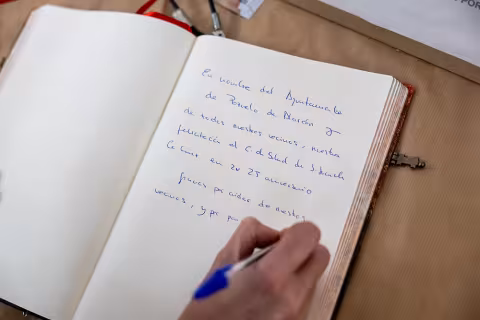 En nombre del Ayuntamiento
de Pozuelo de Alarcón y
de todos nuestros vecinos, nuestra
felicitación al C. de Salud de
en su 25 aniversario
gracias por cuidar de nuestros
vecinos, y por
POR